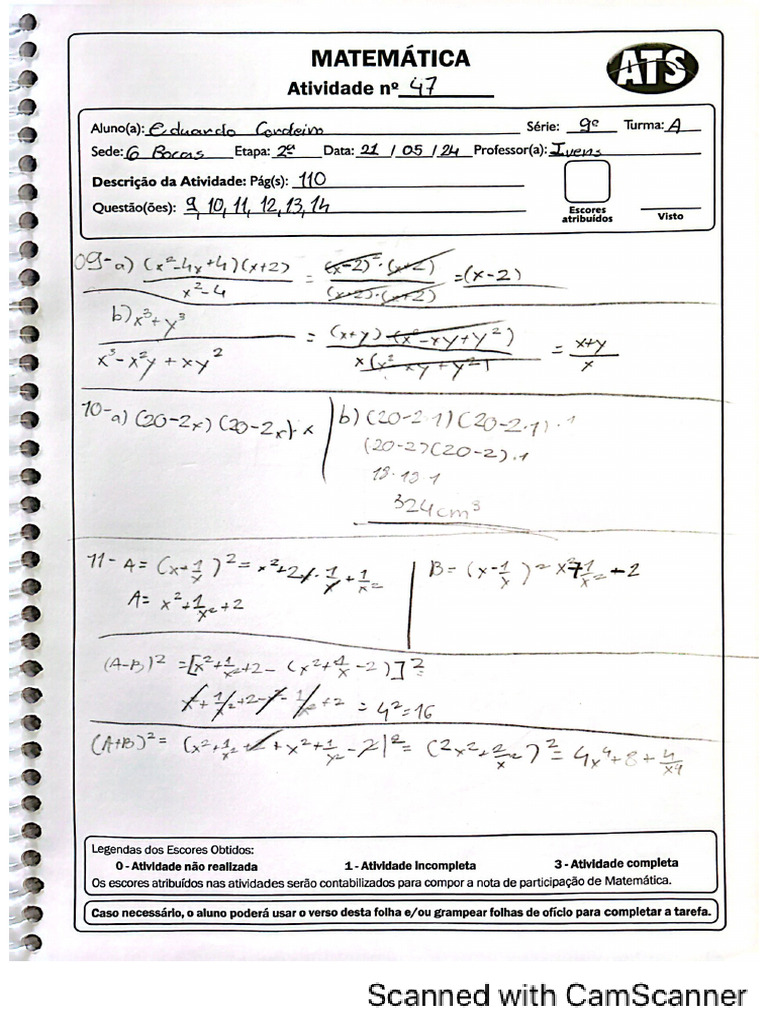 MATEMÁTICA
ATS
Atividade nº 47
Aluno(a): Eduardo Cordeiro Série: 9º Turma: A
Sede: 6 Bocas Etapa: 2ª Data: 21 / 05 / 24 Professor(a): Ivens
Descrição da Atividade: Pág(s): 110
Questão(ões): 9, 10, 11, 12, 13, 14
Escores atribuídos
Visto
09-a) (x²-4x+4)(x+2) / x²-4 = (x-2)²·(x+2) / (x+2)·(x+2) = (x-2)
b) x³+y³ / x³-x²y+xy² = (x+y)(x²-xy+y²) / x(x²-xy+y²) = x+y / x
10-a) (20-2x)(20-2x)·x
b) (20-2·1)(20-2·1)·1
(20-2)(20-2)·1
18·18·1
324cm³
11- A = (x+1/x)² = x²+2x·1/x+1/x²
A = x²+1/x²+2
B = (x-1/x)² = x²+1/x²-2
(A-B)² = [x²+1/x²+2-(x²+1/x-2)]²
x²+1/x²+2-x²-1/x²+2 = 4²=16
(A+B)² = (x²+1/x²+2+x²+1/x²-2)² = (2x²+2/x²)² = 4x⁴+8+4/x⁴
Legendas dos Escores Obtidos:
0 - Atividade não realizada 1 - Atividade Incompleta 3 - Atividade completa
Os escores atribuídos nas atividades serão contabilizados para compor a nota de participação de Matemática.
Caso necessário, o aluno poderá usar o verso desta folha e/ou grampear folhas de ofício para completar a tarefa.
Scanned with CamScanner